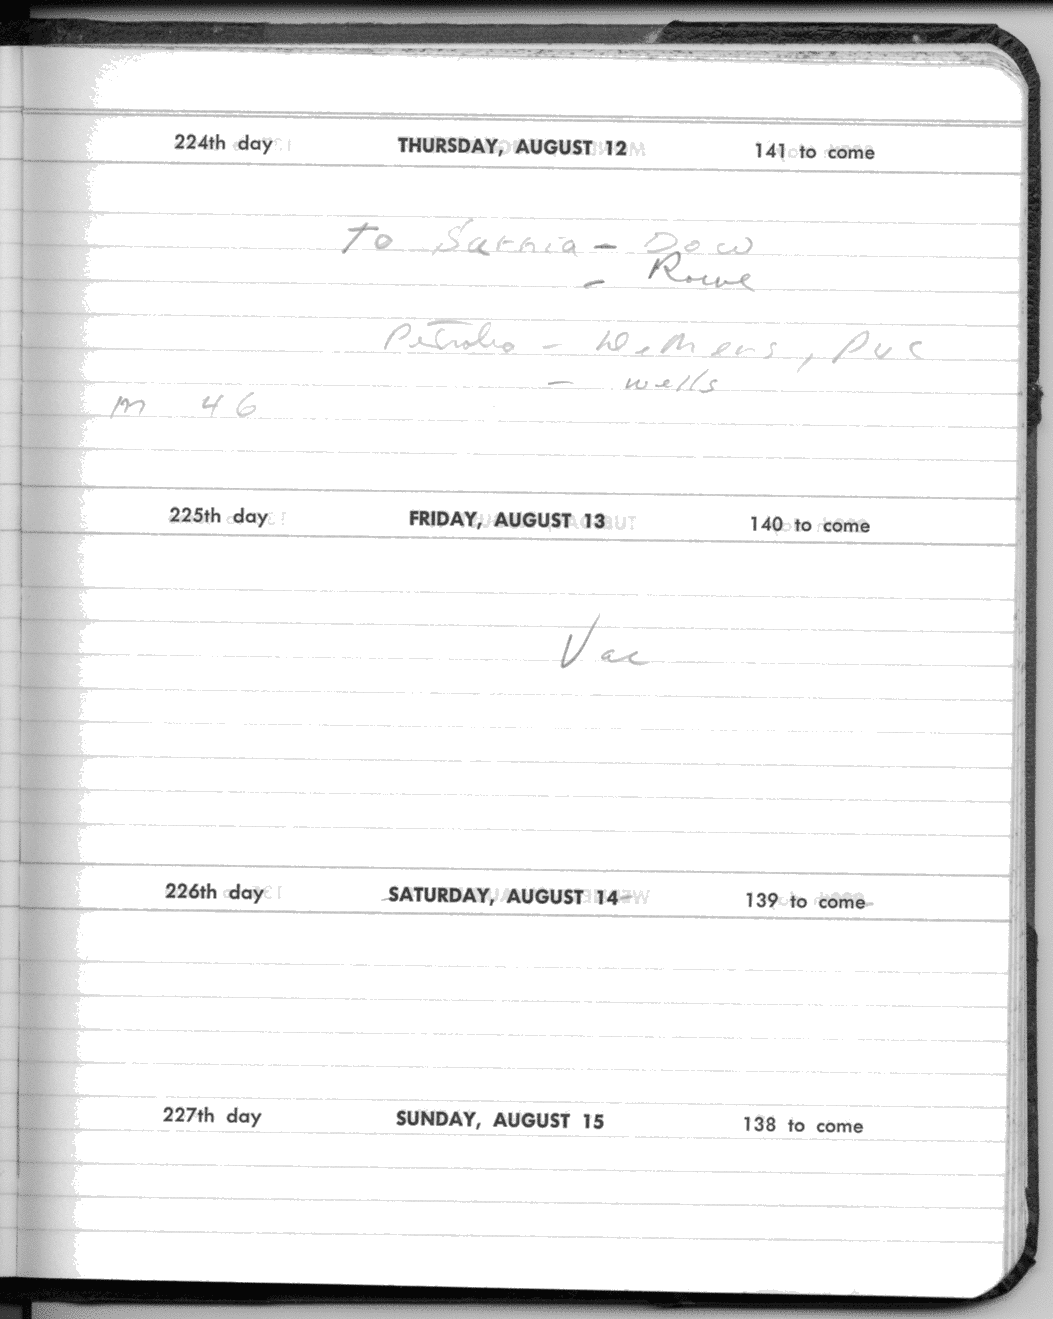 224th day THURSDAY, AUGUST 12 141 to come
To Sarnia - Dow
- Rowe
Petrolia - , PUC
- wells
M 46
225th day FRIDAY, AUGUST 13 140 to come
Vac
226th day SATURDAY, AUGUST 14 139 to come
227th day SUNDAY, AUGUST 15 138 to come